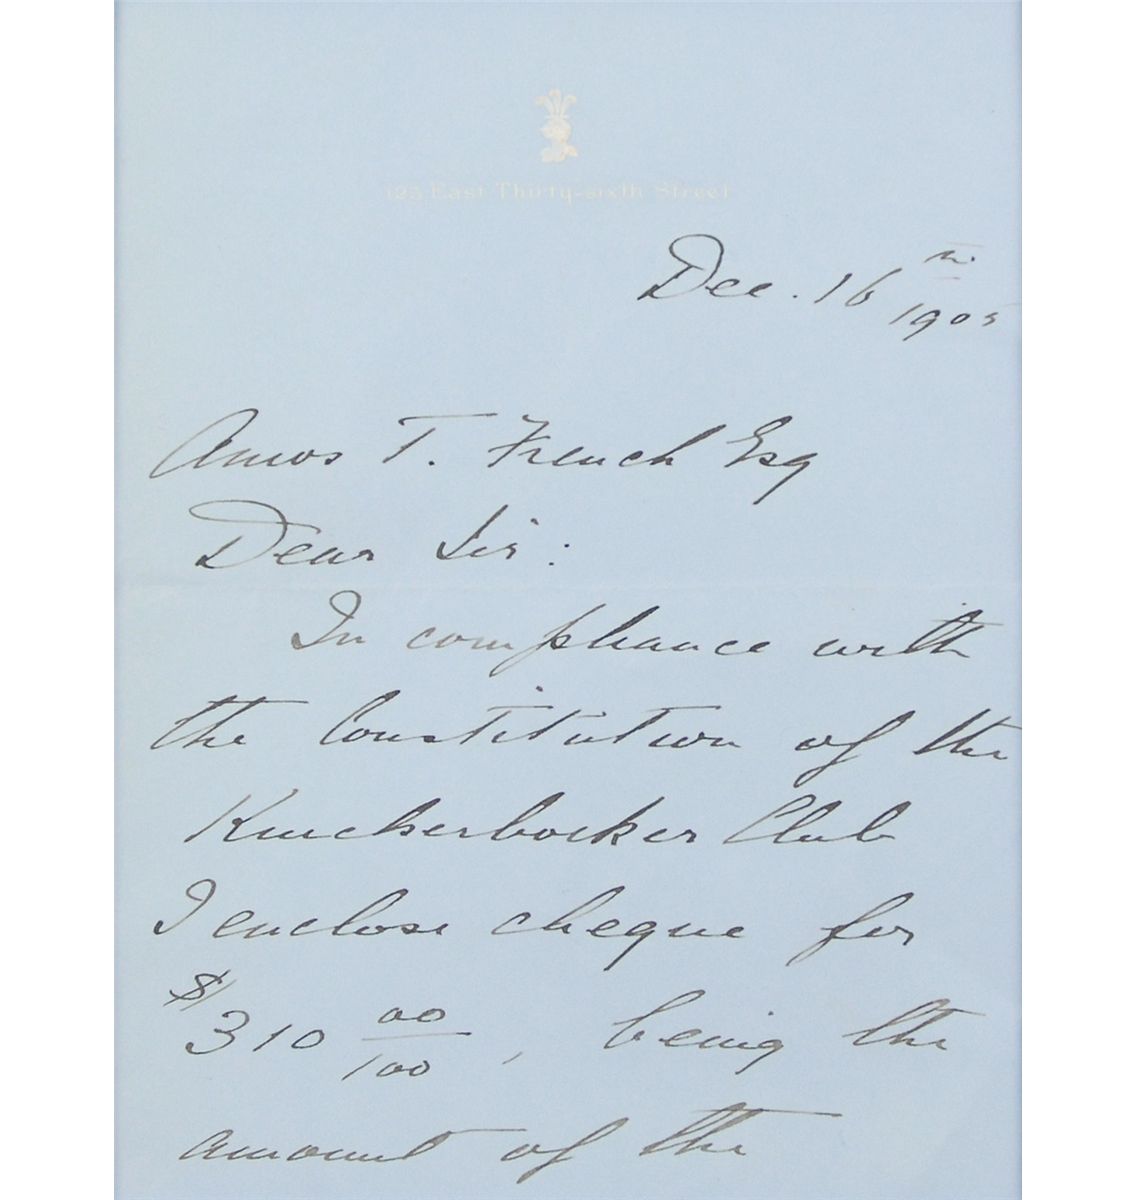 123 East Thirty-sixth Street
Dec. 16th
1905
Amos T. French Esq
Dear Sir:
In compliance with
the Constitution of the
Knickerbocker Club
I enclose cheque for
$310 00/100, being the
amount of the